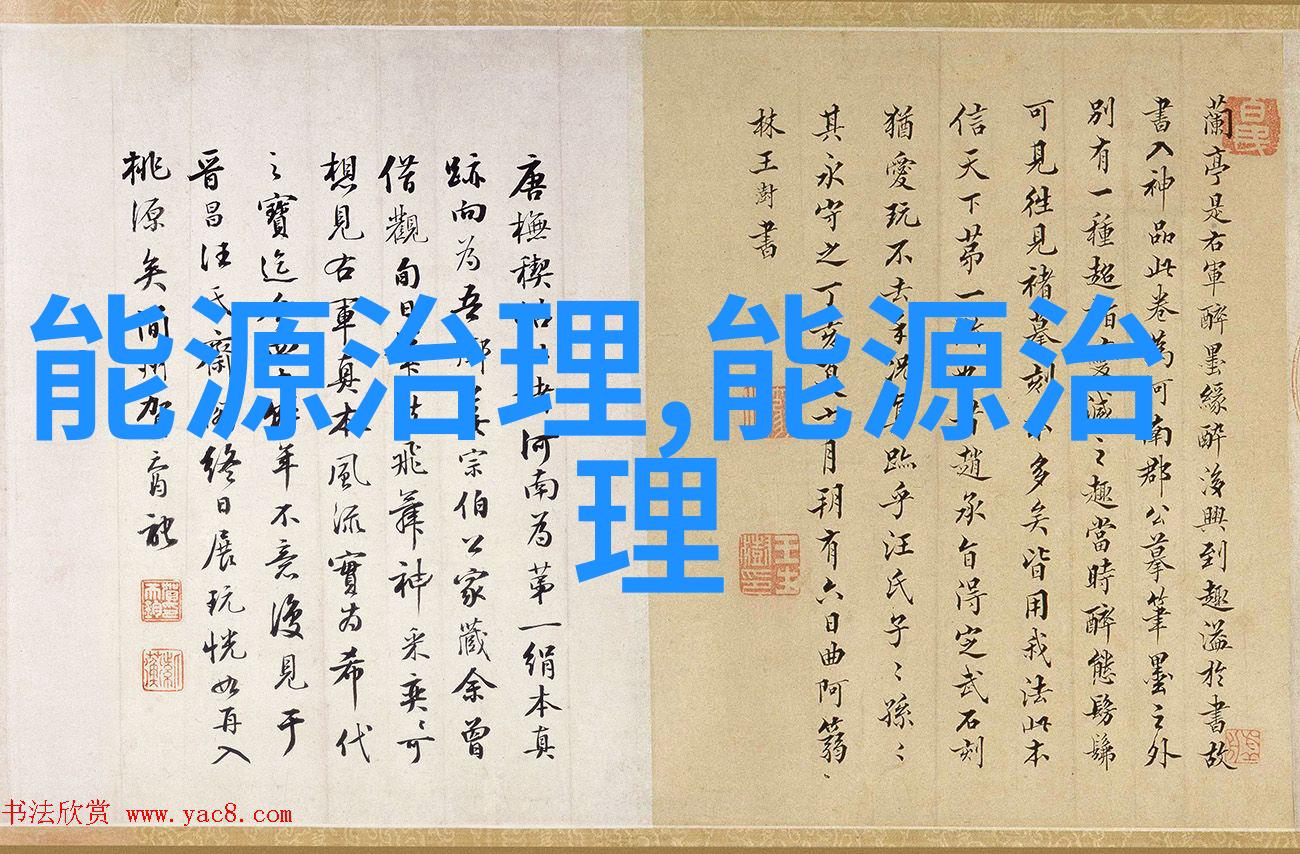 能源治理,能源治
理
蘭亭是右軍醉墨緣醉後興到趣溢於書故
書入神品此卷為河南郡公摹筆墨之外
別有一種超之趣當時醉態髣髴
可見往見褚摹刻多矣皆用我法此本
信天下第一趙承旨得定武石刻
猶愛玩不去況跡乎汪氏子〻孫〻
其永守之丁亥十月朔有六日曲阿蒻〻
林王澍書
唐橅稧河南為第一絹本真
跡向為吾宗伯公家藏余曾
借觀旬日飛舞神采奕〻可
想見右軍真本風流實為希代
之寶迄年不意復見于
晉昌汪氏齋終日展玩恍如再入
桃源矣簡
书法欣赏 www.yac8.com